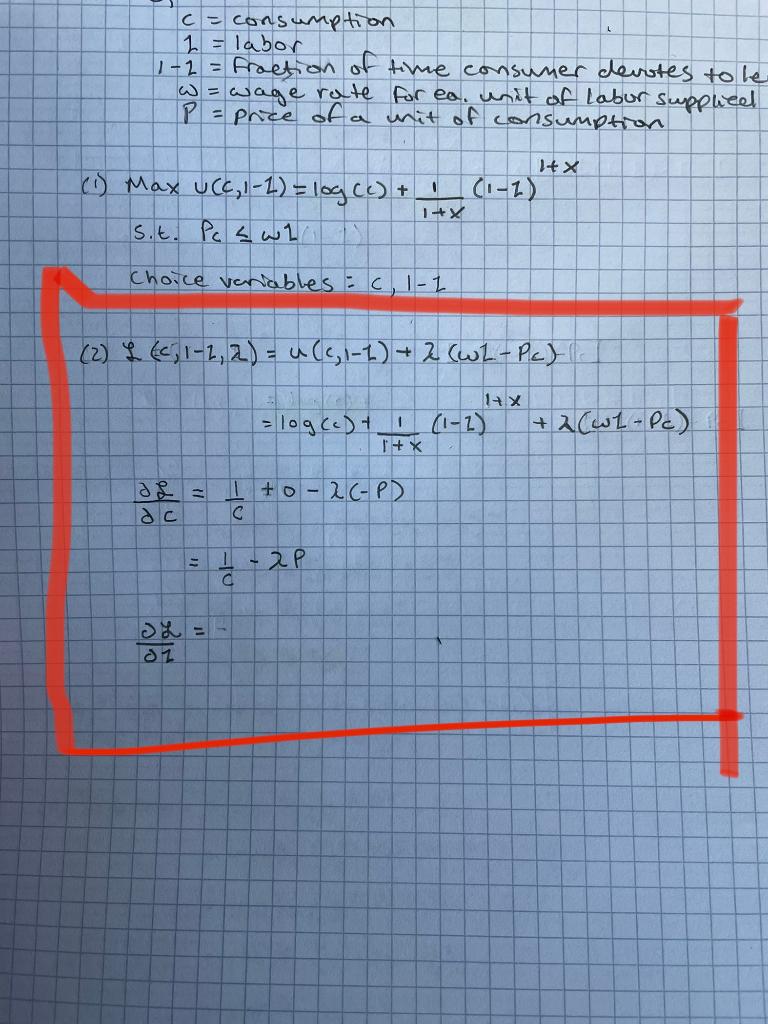 c = consumption
l = labor
1-l = fraction of time consumer devotes to le
w = wage rate for ea. unit of labor supplied
P = price of a unit of consumption
(1) Max u(c,1-l) = log(c) + 1/(1+x) (1-l)^(1+x)
s.t. Pc ≤ wl
Choice variables = c, 1-l
(2) ℒ(c,1-l,λ) = u(c,1-l) + λ(wl-Pc)
= log(c) + 1/(1+x) (1-l)^(1+x) + λ(wl-Pc)
∂ℒ/∂c = 1/c + 0 - λ(-P)
= 1/c - λP
∂ℒ/∂l = -